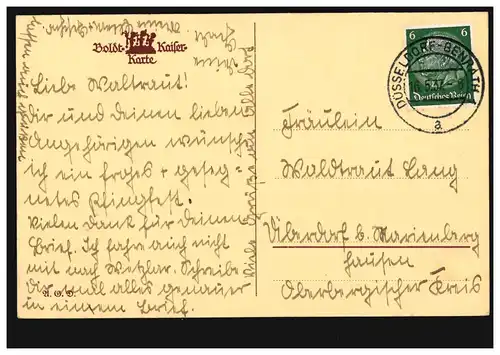 Boldt-Kaiser-
Karte
Liebe Waltraut!
Dir und deinen lieben
Angehörigen wünsch
ich ein frohes + geseg-
netes Pfingstfest.
Vielen Dank für deinen
Brief. Ich fahre auch nicht
mit nach Wetzlar. Schreibe
Dir mal alles genauer
in einem Brief.
A. O. D.
6 6
Deutsches Reich
DÜSSELDORF-BENRATH
a
Fräulein
Waldtraut Lang
Überdorf b. Marienberg
hausen
Oberbergischer Kreis